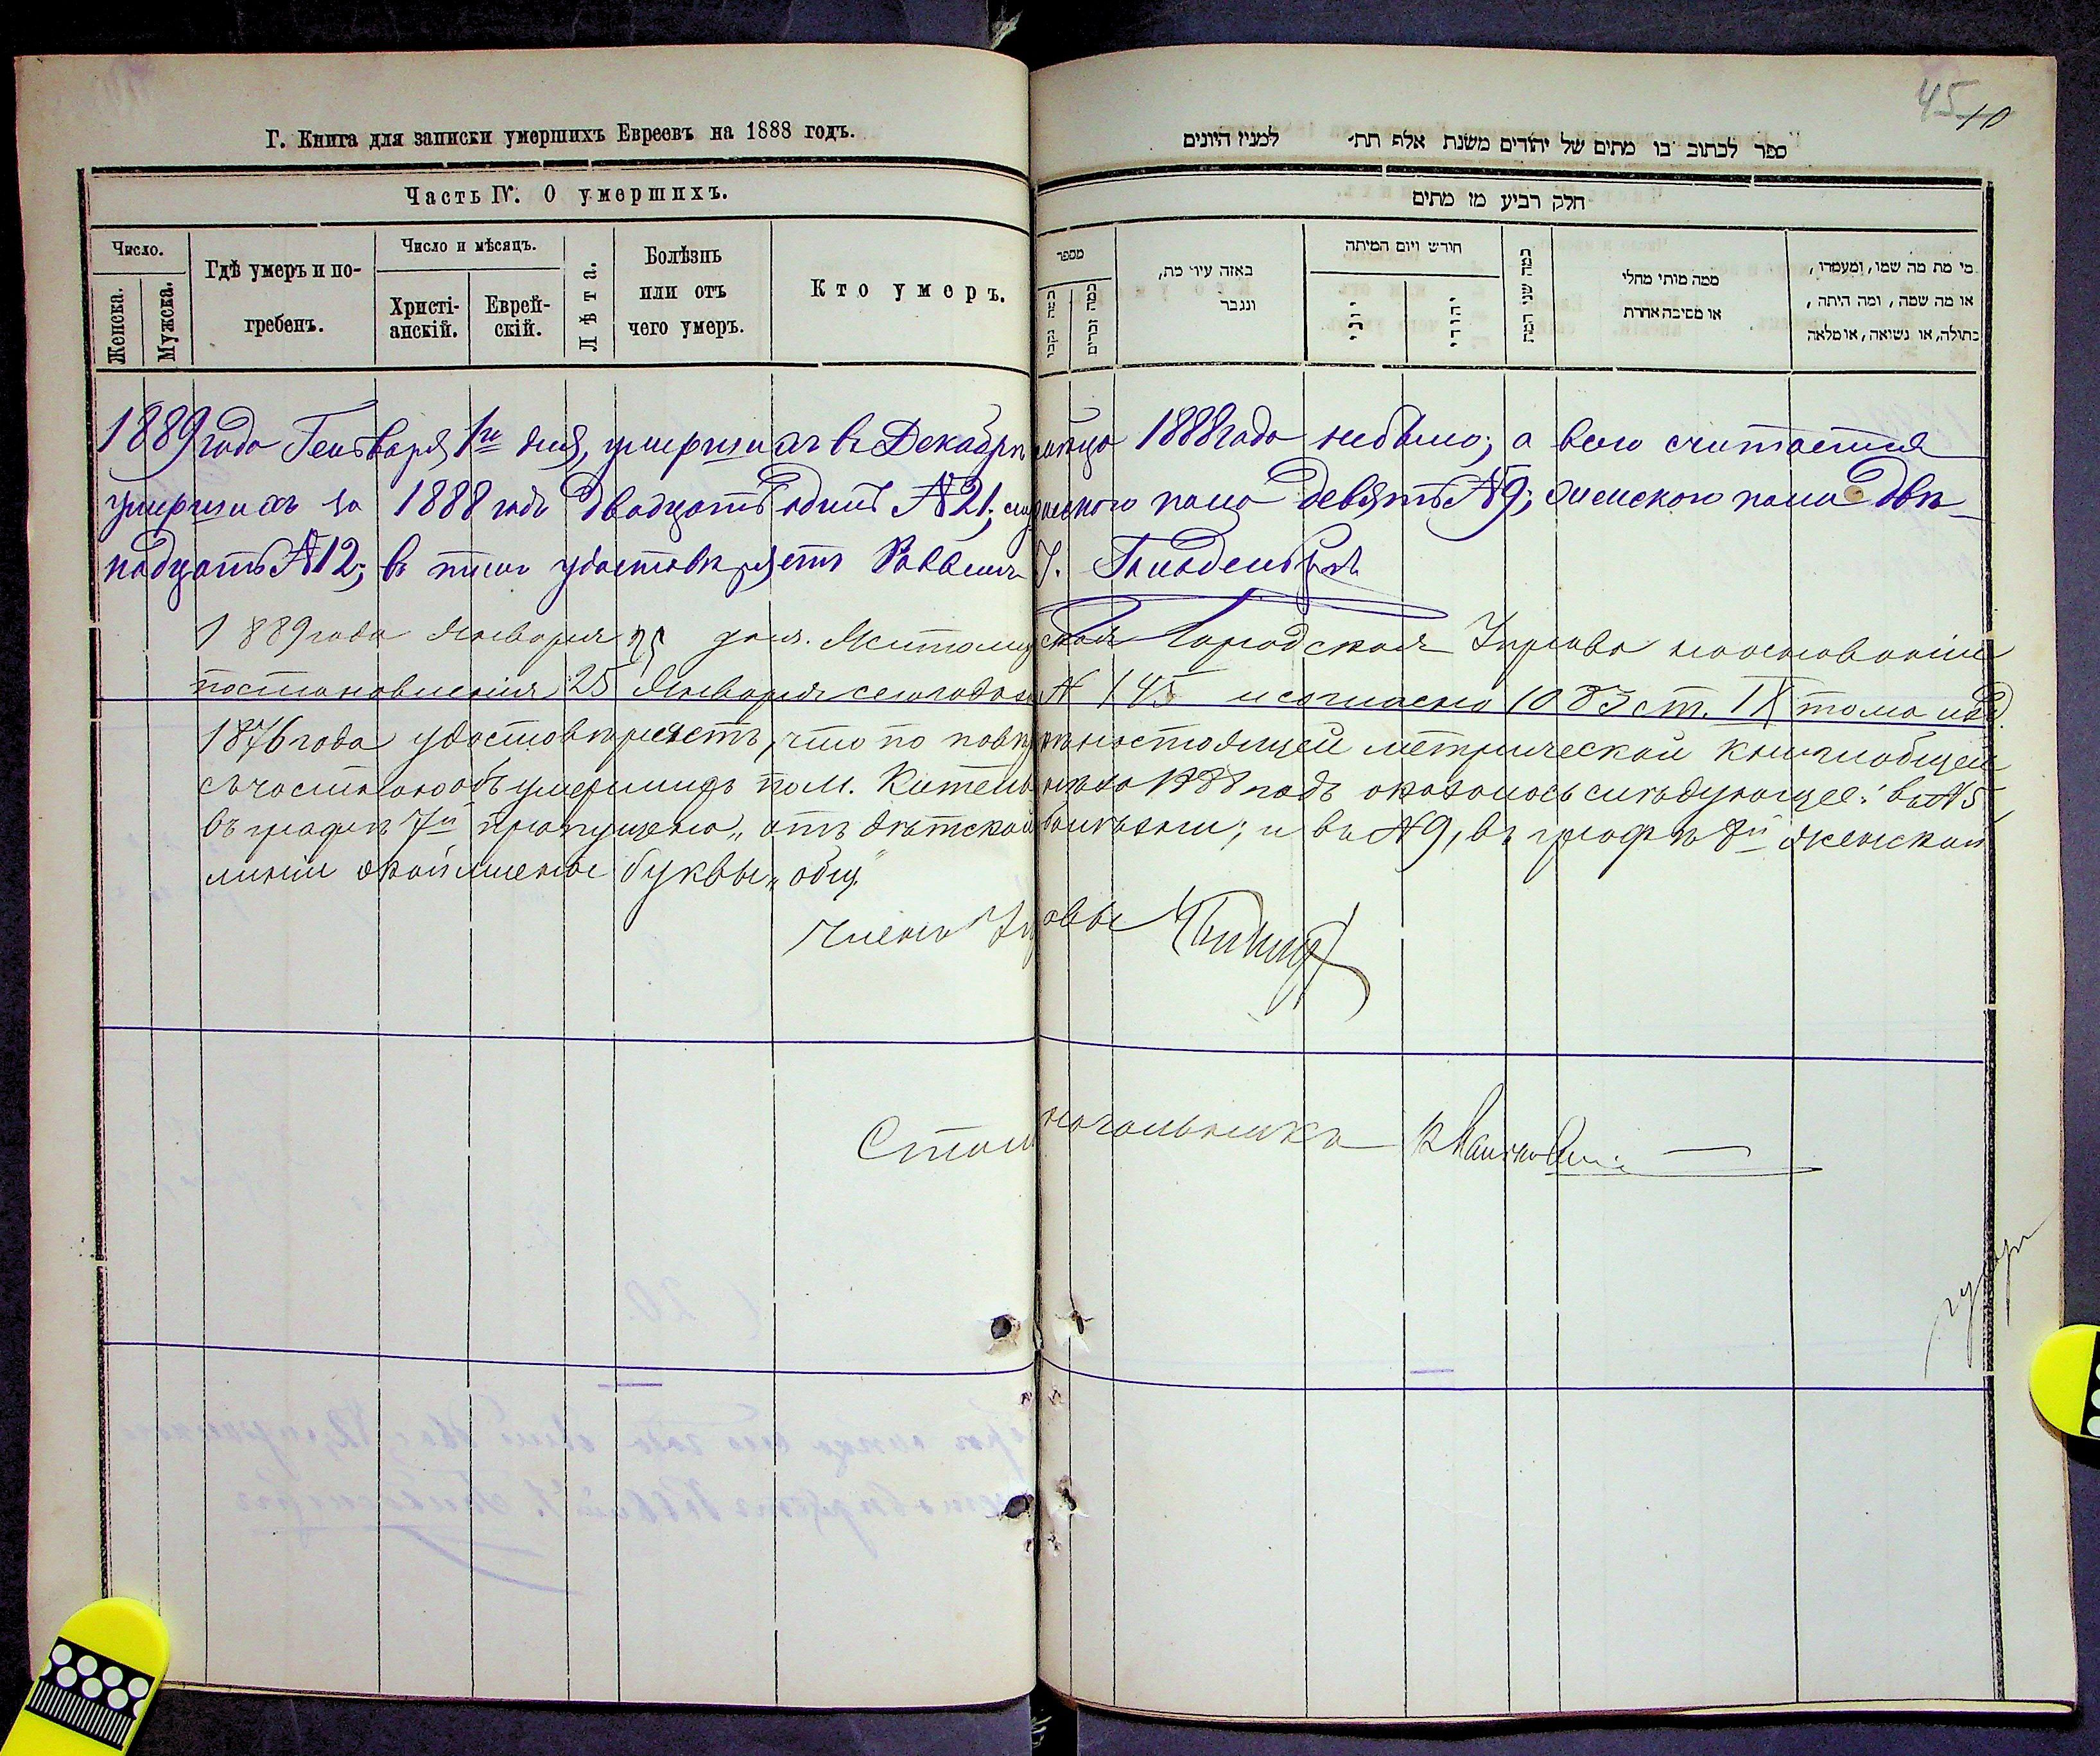 45 10
Г. Книга для записки умершихъ Евреевъ на 1888 годъ.
ספר לכתוב בו מתים של יהודים משנת אלף תת״ למנין היונים
Часть IV. О умершихъ.
חלק רביע מז מתים
Число.
Женска.
Мужска.
Гдѣ умеръ и по-
гребенъ.
Число и мѣсяцъ.
Христі-
анскій.
Еврей-
скій.
Лѣта.
Болѣзнь
или отъ
чего умеръ.
Кто умеръ.
מספר
כמה נקבו
כמה זכרים
באזה עיר מת,
ונגבר
חורש ויום המיתה
יוני
יהודי
כמה שני המת
ממה מותי מחלי
או מסיבה אחרת
מי מת מה שמו, ומעמרו,
או מה שמה, ומה היתה,
בתולה, או נשואה, או מלאה
1889 года Генваря 1го дня, умершихъ въ Декабрѣ мѣцѣ 1888 года небыло; а всего считается
умершихъ за 1888 годъ двадцать одинъ №21; мужескаго пола девять №9; женскаго пола двѣ-
надцать №12; въ томъ удостовѣряетъ Раввинъ
1889 года Января дня. Житомирская Городская Управа наоснованіи
постановленія 25 Января сегогода за № 145 и согласно 1083 ст. IX тома изд.
1876 года удостовѣряетъ, что по повѣркѣ настоящей метрической книги общей
съ частію объ умершихъ пол. за 1888 годъ оказалось слѣдующее: въ №5
въ графѣ 7й пропущено „отъ дѣтской болѣзни; и въ №9, въ графѣ 8й женской
линіи буквы „общ."
Членъ Управы
Столоначальника